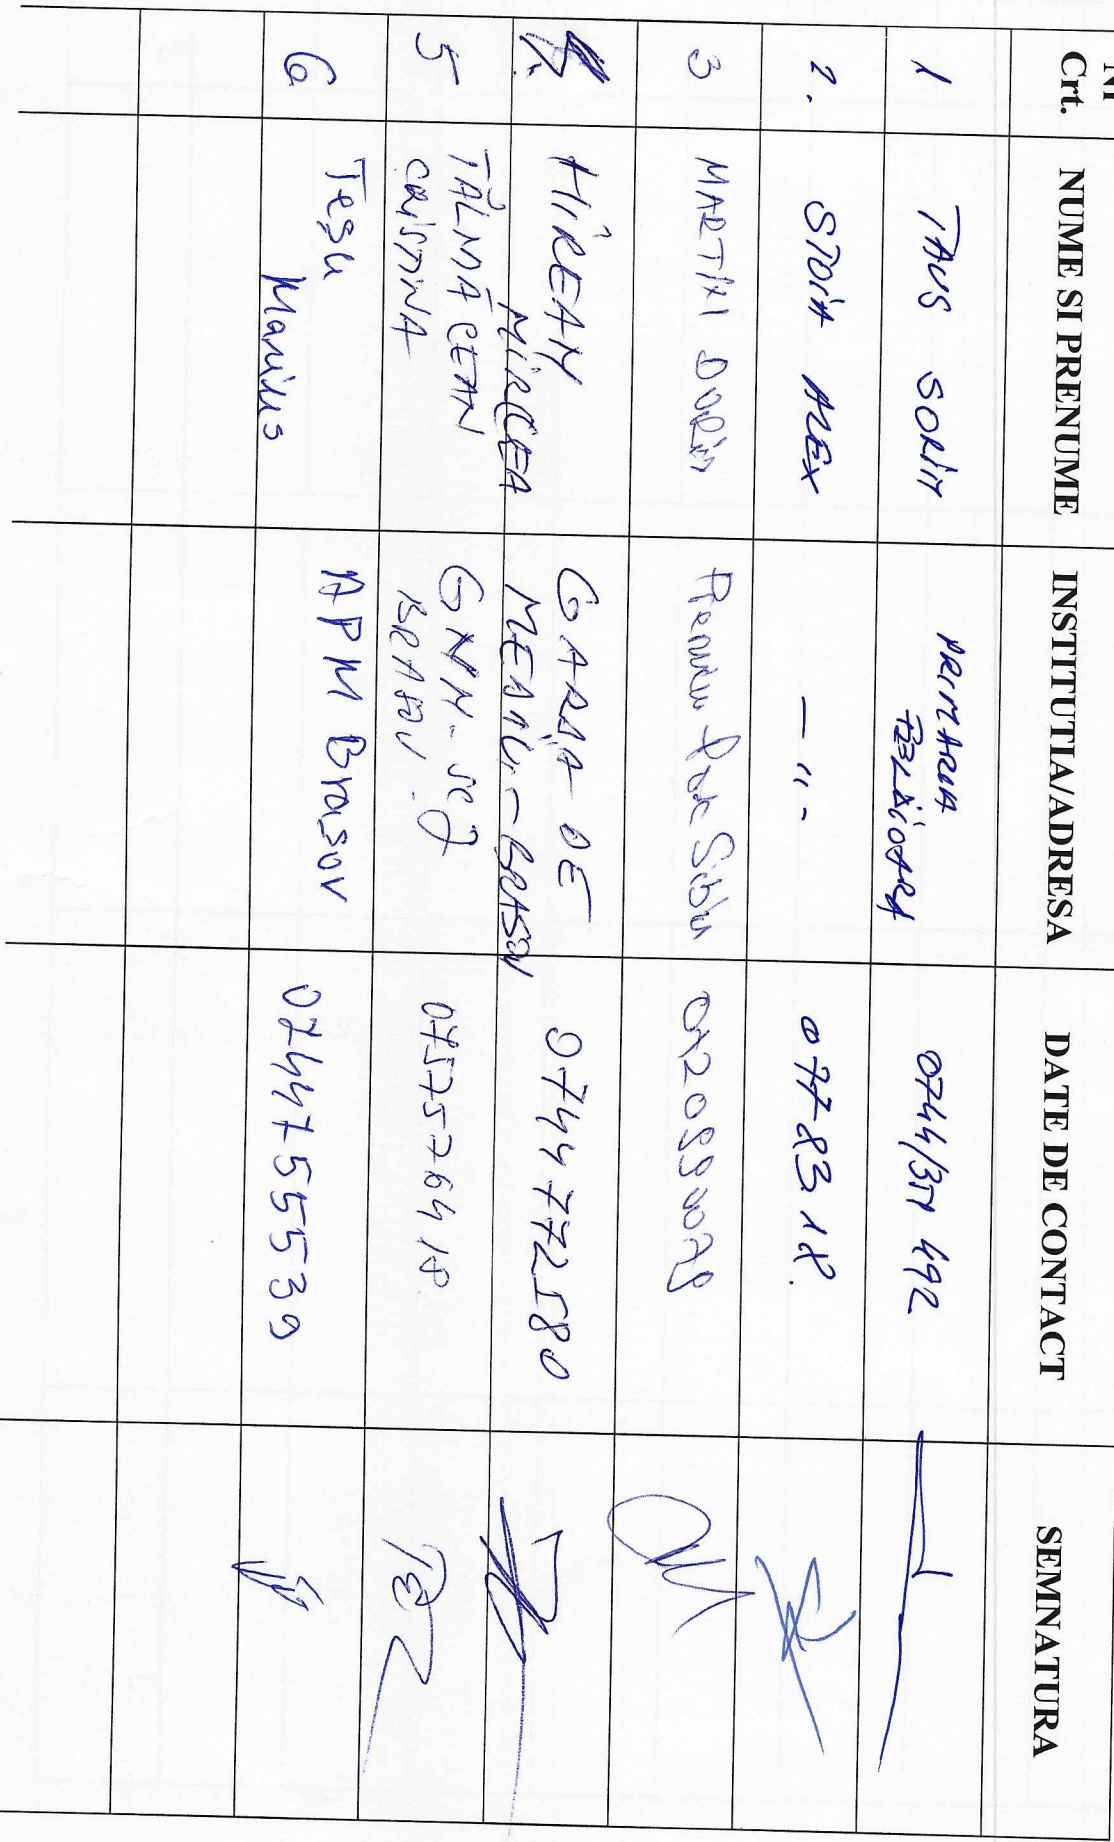 Nr
Crt. NUME SI PRENUME INSTITUTIA/ADRESA DATE DE CONTACT SEMNATURA
1 TAUS SORIN PRIMARIA
FELDIOARA 0744/311 492
2. STOIA ALEX — " - 077 83 18.
3 MARTIN DORIN Sibiu
HÎREAN
MIRCEA GARDA DE
MEDIU - BRASOV 0744 772580
5 TĂLMĂCEAN
CRISTINA GNM - SCJ
BRASOV. 0757576418
6 Teșu
Marius APM Brasov 0744755539